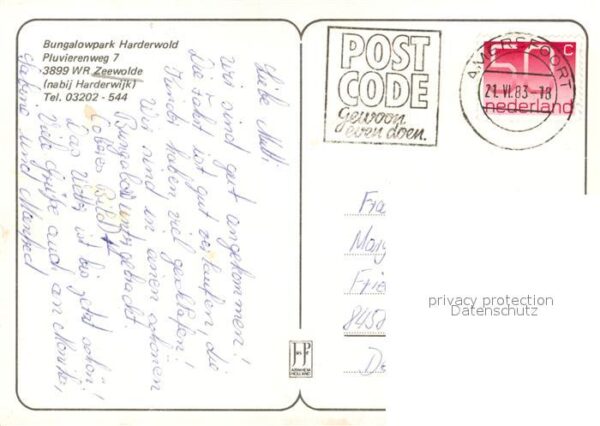 Bungalowpark Harderwold
Pluvierenweg 7
3899 WR Zeewolde
(nabij Harderwijk)
Tel. 03202 - 544
Liebe Mutti
Wir sind gut angekommen!
Die Fahrt ist gut verlaufen, die
Kinder haben viel geschlafen!
Wir sind in einen schönen
Bungalow untergebracht.
(oberes Bild)
Das Wetter ist bis jetzt schön!
Viele Grüße auch an Monika,
Sabine und Manfred
POST
CODE
Gewoon
even doen.
AMERSFOORT
21.VI.83-18
c
nederland
Fra
Marg
Frie
8450
privacy protection
Datenschutz
JosPé
ARNHEM
HOLLAND